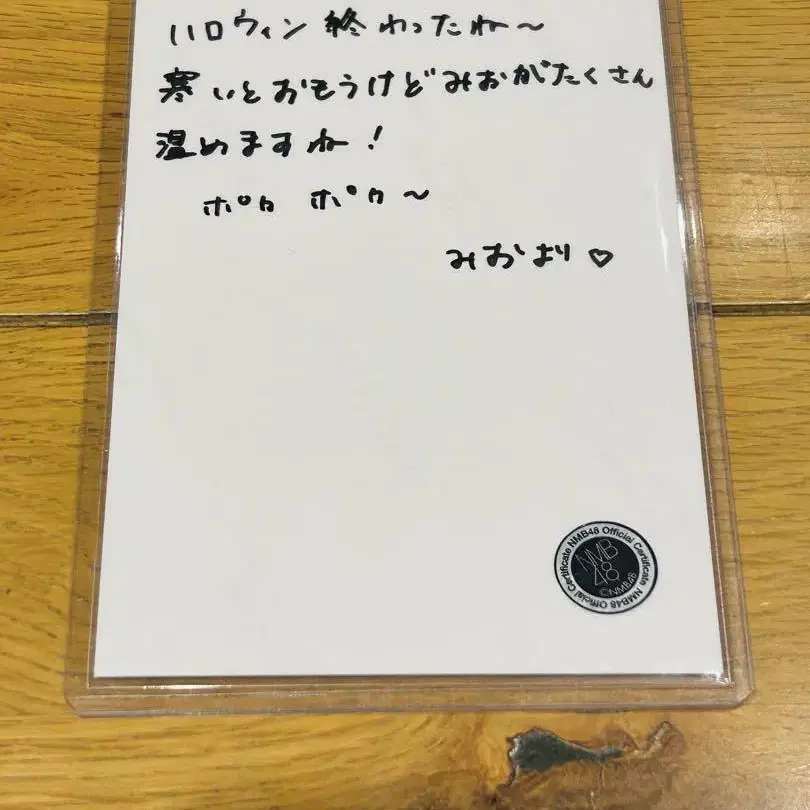 ハロウィン終わったね〜
寒いとおもうけどみおがたくさん
温めますね!
ポカ ポカ〜
みおより♡
NMB48 Official Certificate NMB48 Official Certificate
NMB
48
©NMB48